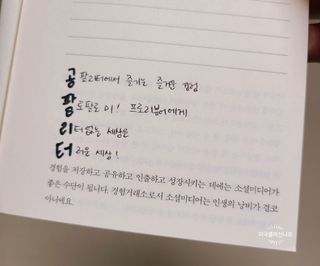 공팔리터에서 즐기는 즐거운 경험
팔로팔로미! 프로리뷰어에게
리터없는 세상은
터러운 세상!
경험을 저장하고 공유하고 인출하고 성장시키는 데에는 소셜미디어가
좋은 수단이 됩니다. 경험거래소로서 소셜미디어는 인생의 낭비가 결코
아니에요.